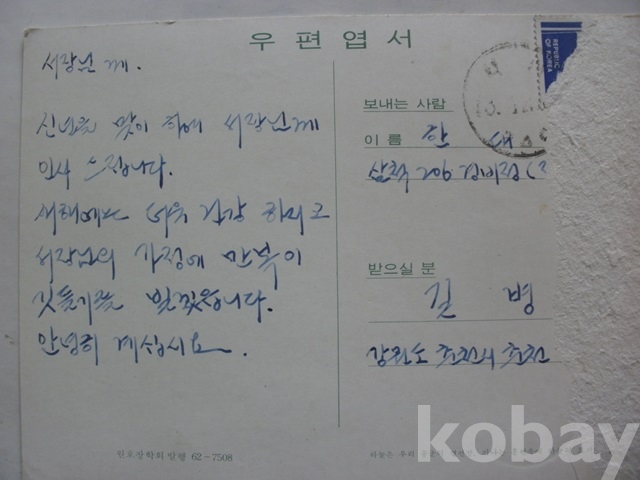 우편엽서
서장님 께.
신년을 맞이 하여 서장님께
인사 드립니다.
새해에는 더욱 건강 하시고
서장님의 가정에 만복이
깃들기를 빌겠읍니다.
안녕히 계십시요.
REPUBLIC
OF KOREA
보내는 사람
이 름 한
삼척 206 경비정
받으실 분
길 병
강원도 춘천시 춘천
발행 62-7508
하늘은 우리
kobay